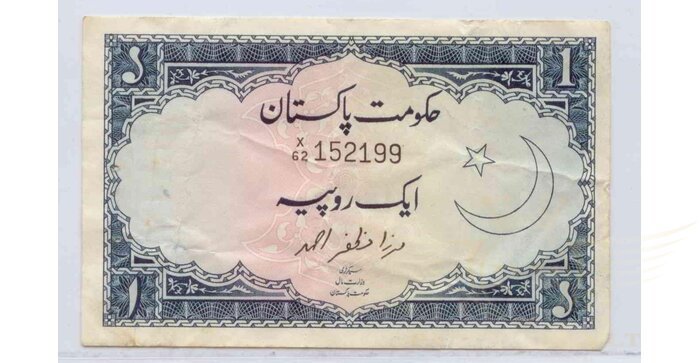 ১ 1
حکومت پاکستان
X/62 152199
ایک روپیہ
مرزا مظفر احمد
سیکرٹری
وزارت مال
حکومت پاکستان
۱ ১